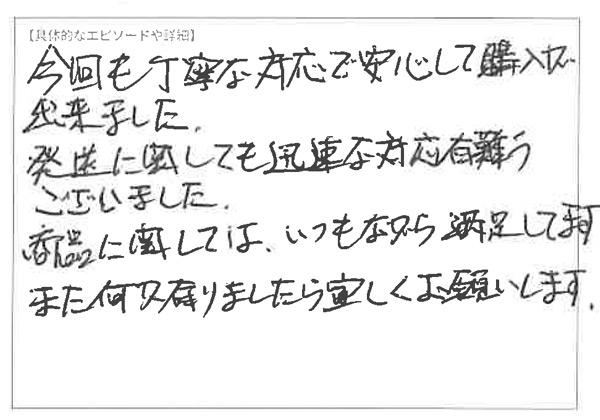 【具体的なエピソードや詳細】
今回も丁寧な対応で安心して購入が
出来ました。
発送に関しても迅速な対応有難う
ございました。
商品に関しては、いつもながら満足してます
また何か有りましたら宜しくお願いします。